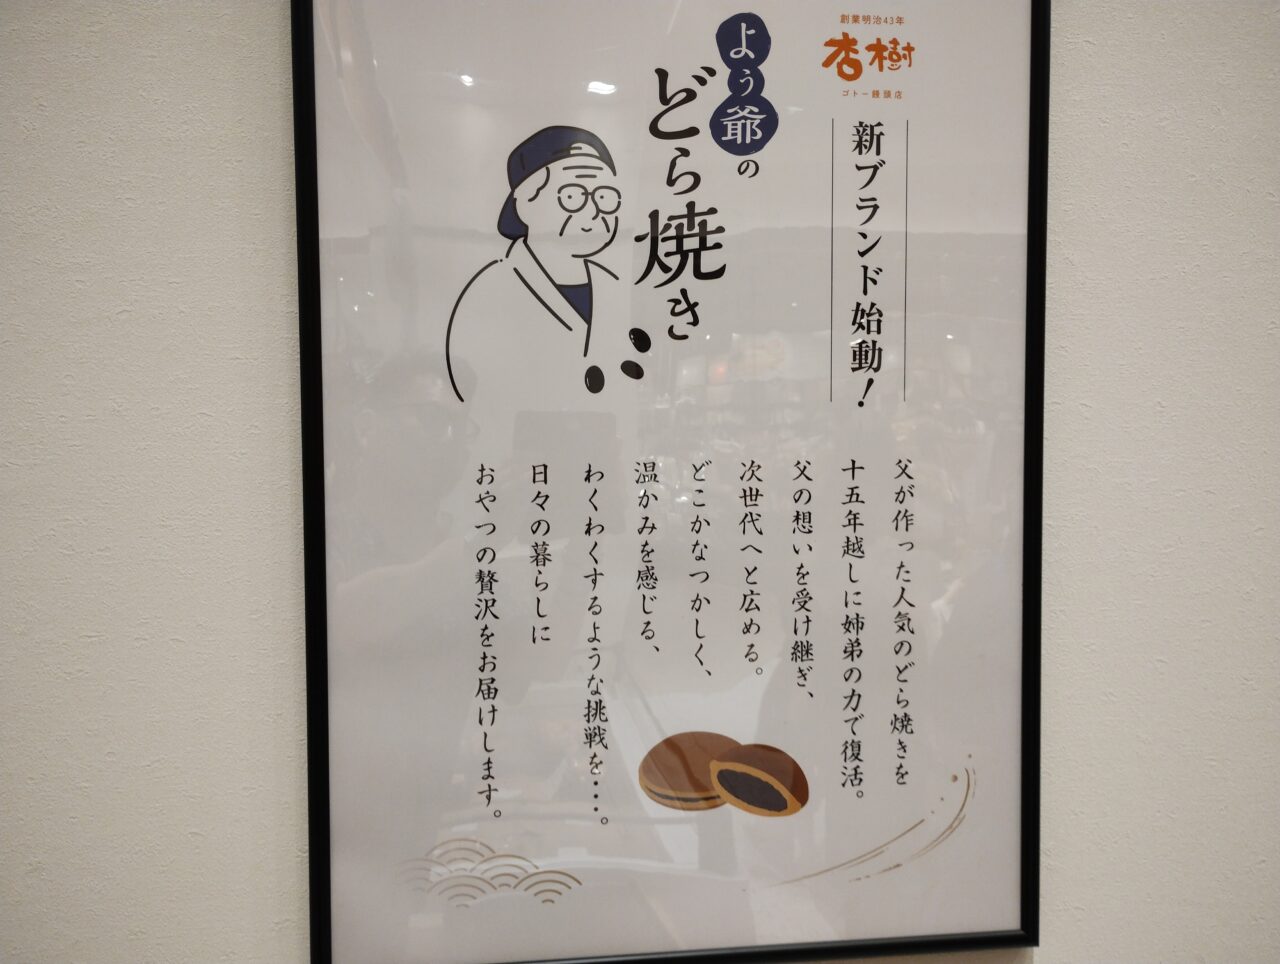 創業明治43年
杏樹
ゴトー饅頭店
新ブランド始動！
よう爺の
どら焼き
父が作った人気のどら焼きを
十五年越しに姉弟の力で復活。
父の想いを受け継ぎ、
次世代へと広める。
どこかなつかしく、
温かみを感じる、
わくわくするような挑戦を････。
日々の暮らしに
おやつの贅沢をお届けします。